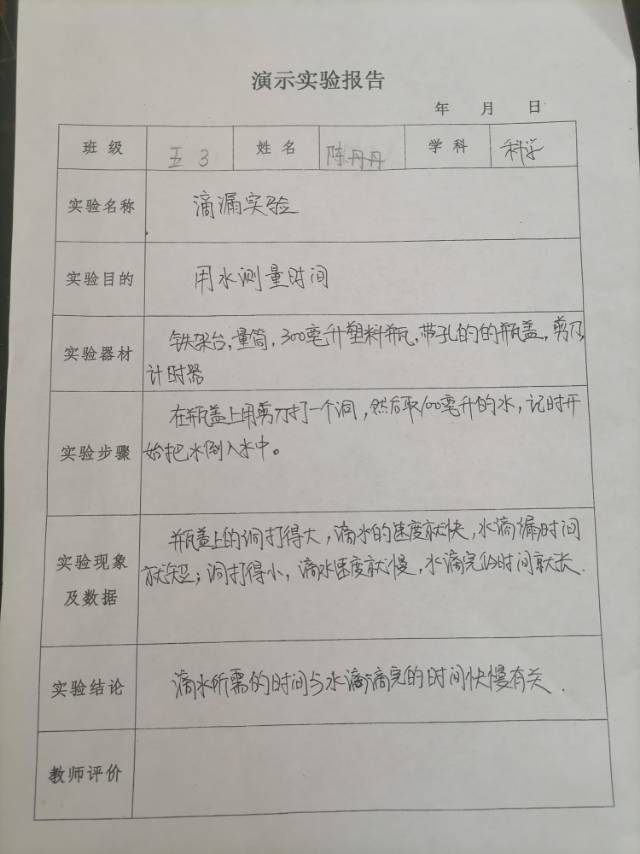 演示实验报告
年 月 日
班级 五3 姓名 陈丹丹 学科 科学
实验名称 滴漏实验
实验目的 用水测量时间
实验器材 铁架台,量筒,300毫升塑料瓶,带孔的的瓶盖,剪刀,
计时器
实验步骤 在瓶盖上用剪刀打一个洞,然后取100毫升的水,记时开
始把水倒入水中。
实验现象 瓶盖上的洞打得大,滴水的速度就快,水滴漏时间
及数据 就短;洞打得小,滴水速度就慢,水滴完的时间就长.
实验结论 滴水所需的时间与水滴滴完的时间快慢有关.
教师评价